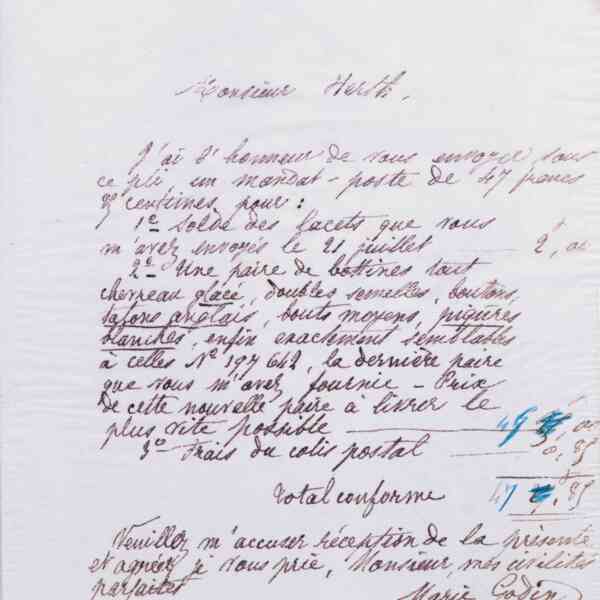 Monsieur Herth.
J'ai l'honneur de vous envoyer sous
ce pli un mandat-poste de 47 francs
centimes pour :
1º Solde des lacets que vous
m'avez envoyés le 21 juillet — 2f,00
2º Une paire de bottines tout
chevreau glacé, doubles semelles, boutons,
talons anglais, bouts moyens, piqûres
blanches, enfin exactement semblables
à celles Nº 197642, la dernière paire
que vous m'avez fournie – Prix
de cette nouvelle paire à livrer le
plus vite possible —
3º Frais du colis postal — 0,85
Total conforme 47 ,85
Veuillez m'accuser réception de la présente
et agréer, je vous prie, Monsieur, mes civilités
parfaites
Marie Godin